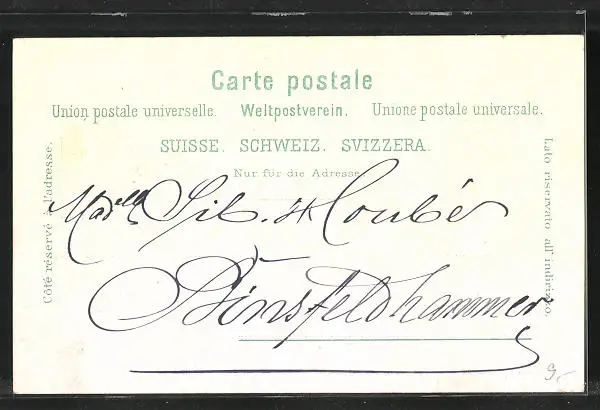 Carte postale
Union postale universelle. Weltpostverein. Unione postale universale.
SUISSE. SCHWEIZ. SVIZZERA.
Nur für die Adresse
Côté réservé à l'adresse.
Lato riservato all' indirizzo.
Madlle Sib. Houbé
Binsfeldhammer
9.-